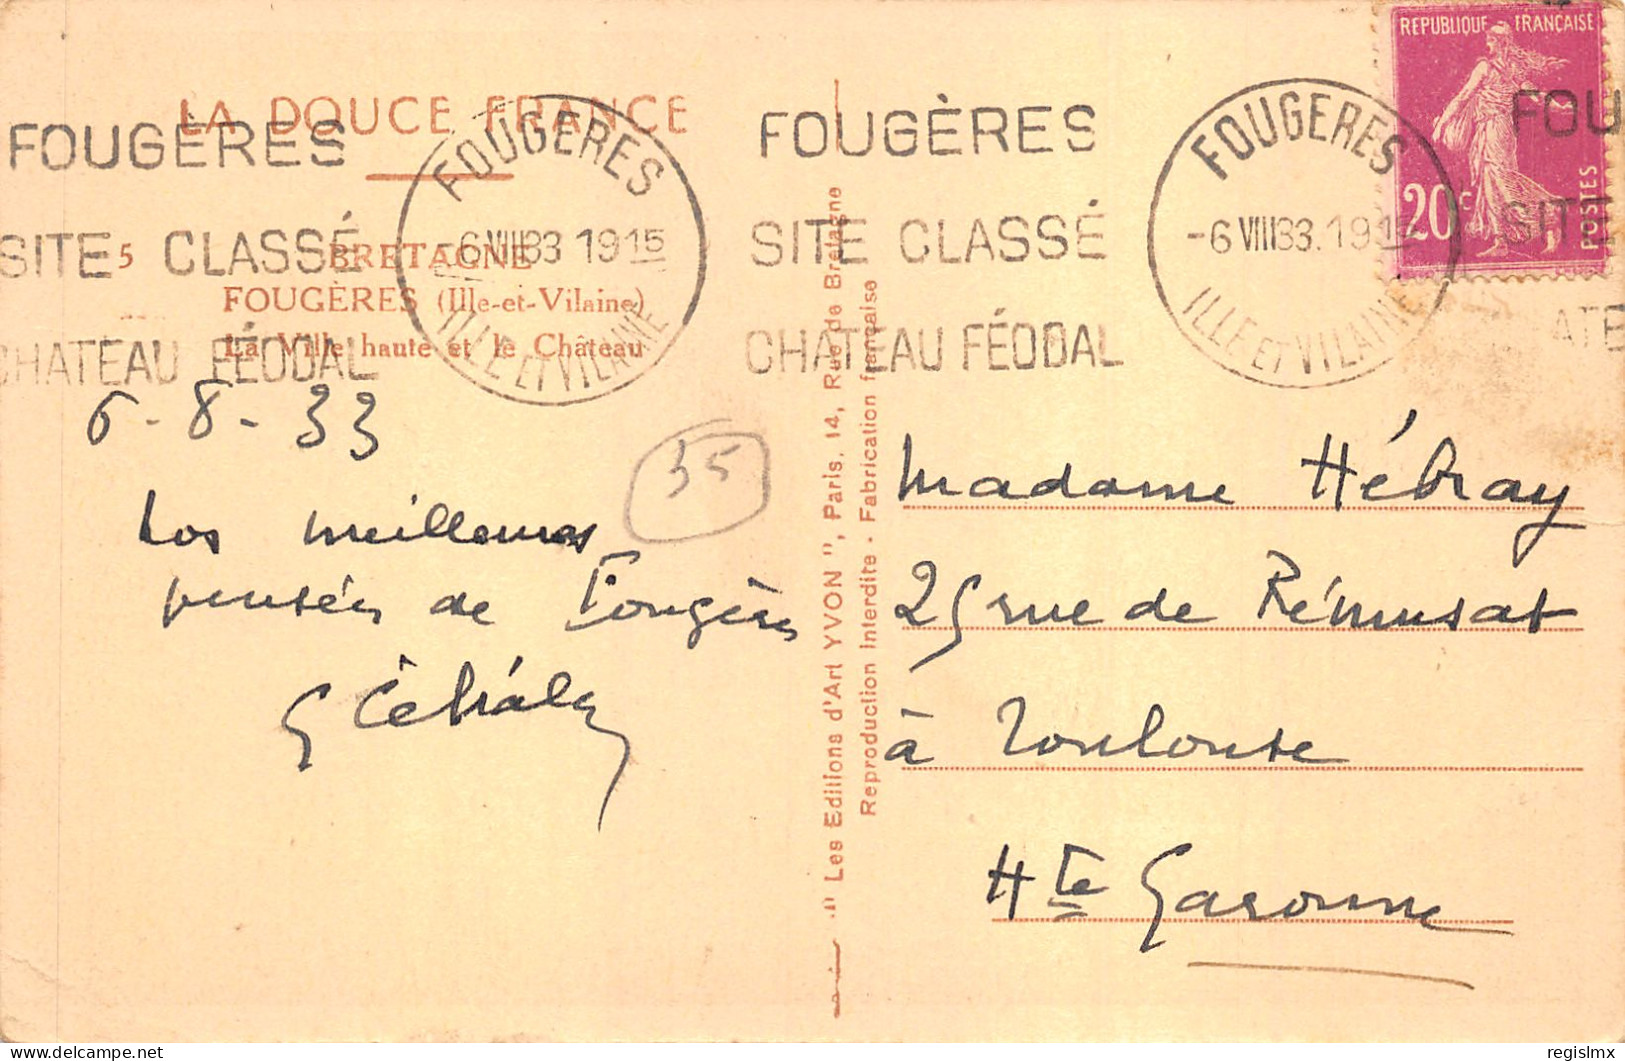 LA DOUCE FRANCE
FOUGÈRES
SITE CLASSÉ
CHATEAU FÉODAL
FOUGERES
-6 VIII 33 1915
ILLE ET VILAINE
5 BRETAGNE
FOUGÈRES (Ille-et-Vilaine)
La Ville haute et le Château
6-8-33
35
meilleures
pensées de Fougères
FOUGÈRES
SITE CLASSÉ
CHATEAU FÉODAL
FOUGERES
-6 VIII 33. 19
ILLE ET VILAINE
REPUBLIQUE FRANÇAISE
20c
POSTES
FOU
SITE
ATE
Les Editions d'Art YVON", Paris, 14, Rue de Bretagne
Reproduction Interdite - Fabrication française
Madame Hébray
25 rue de Rémusat
à Toulouse
Hte Garonne
delcampe.net
regislmx